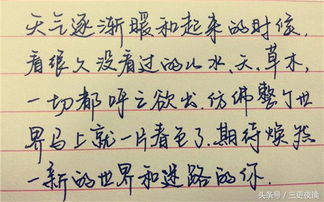 天气逐渐暖和起来的时候,
看很久没看过的山水、天、草木,
一切都呼之欲出,仿佛整个世
界马上就一片春色了.期待焕然
一新的世界和迷路的你.
头条号 / 三更夜读